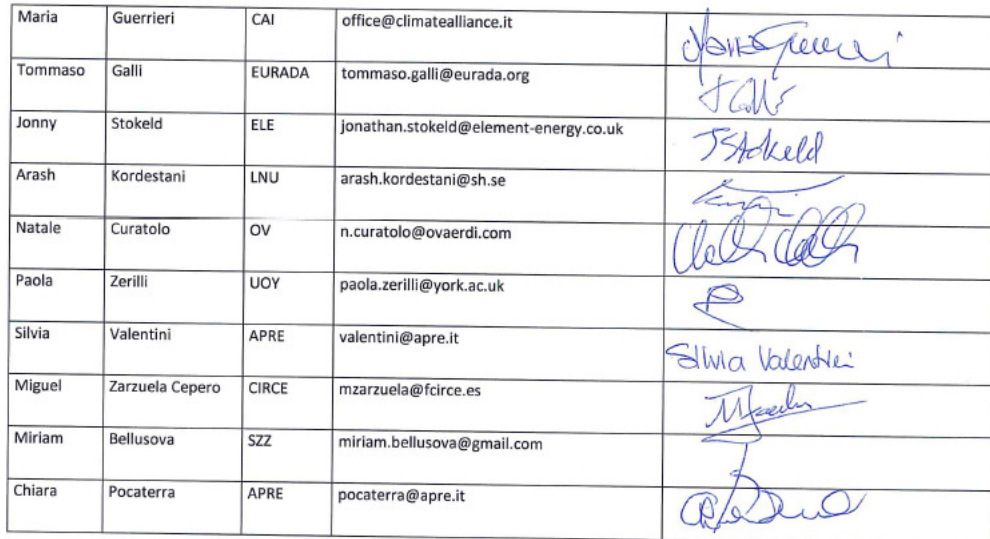 Maria Guerrieri CAI office@climatealliance.it
Tommaso Galli EURADA tommaso.galli@eurada.org
Jonny Stokeld ELE jonathan.stokeld@element-energy.co.uk JStokeld
Arash Kordestani LNU arash.kordestani@sh.se
Natale Curatolo OV n.curatolo@ovaerdi.com
Paola Zerilli UOY paola.zerilli@york.ac.uk
Silvia Valentini APRE valentini@apre.it Silvia Valentini
Miguel Zarzuela Cepero CIRCE mzarzuela@fcirce.es
Miriam Bellusova SZZ miriam.bellusova@gmail.com
Chiara Pocaterra APRE pocaterra@apre.it